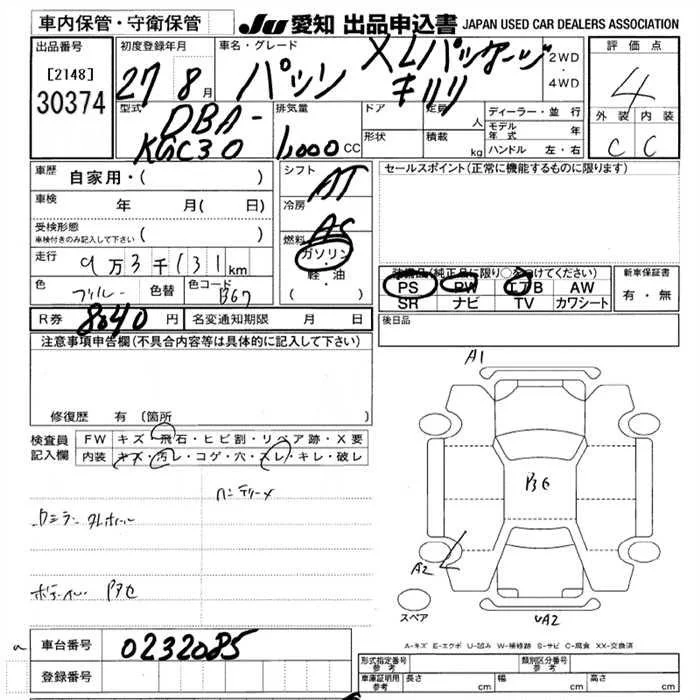 車内保管・守衛保管 JU 愛知 出品申込書 JAPAN USED CAR DEALERS ASSOCIATION
出品番号 初度登録年月 車名・グレード 2WD・4WD 評価点
[2148] 27 8月 パッソ XLパッケージ キリリ 4
30374 型式 DBA-KGC30 排気量 1,000CC ドア 定員 人 ディーラー・並行 外装 内装
形状 積載 kg モデル年式 年 C C
ハンドル 左・右
車歴 自家用・( ) シフト AT セールスポイント(正常に機能するものに限ります)
車検 年 月( 日) 冷房 AC
受検形態 ( )
車検付きのみ記入して下さい
燃料 ガソリン・軽・油 ( )
走行 9万3千131km 装備品(純正品に限り○をつけてください) 新車保証書
色 ブルー 色替 色コード B67 PS PW エアB AW 有・無
SR ナビ TV カワシート
R券 8040円 名変通知期限 月 日 後日品
注意事項申告欄(不具合内容等は具体的に記入して下さい)
修復歴 有(箇所
検査員記入欄 FW キズ・飛石・ヒビ割・リペア跡・X要
内装 キズ・汚レ・コゲ・穴・スレ・キレ・破レ
A1
B6
A2
UA2
スペア
A-キズ E-エクボ U-凹み W-補修跡 S-サビ C-腐食 XX-交換済
車台番号 0232085
登録番号
形式指定番号 参考 類別区分番号 参考
車庫証明用 参考 長さ cm 幅 cm 高さ cm